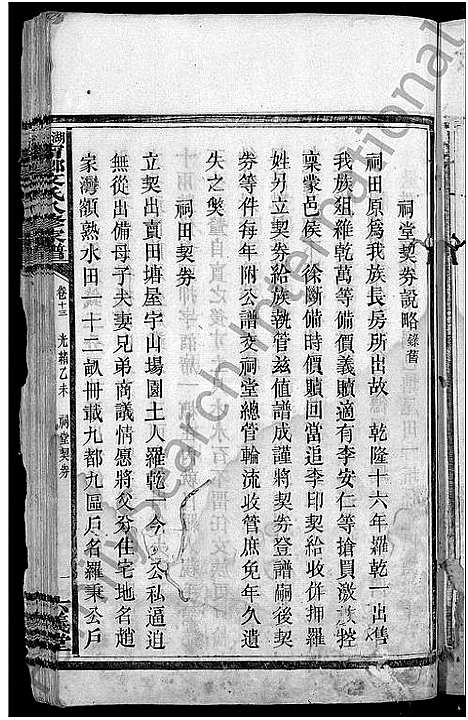 祠堂契券說略錄舊
祠田原爲我族長房所出故　乾隆十六年羅乾一出售
我族組維乾萬等備價義贖適有李安仁等搶買激族控
稟蒙邑侯　徐斷備時價贖回當追李印契給收併押羅
姓另立契券給族執管兹值譜成謹將契券登譜嗣後契
券等件每年附公譜交祠堂總管輪流收管庶免年久遺
失之獘
祠田契券
立契出賣田塘屋宇山場園土人羅乾一今　公私逼迫
無從出備母子夫妻兄弟商議情愿將父分住宅地名趙
家灣額熟水田一十二畝冊載九都九區戶名羅秉公戶
卷十三　光緒乙未　祠堂契券　一
FamilySearch International